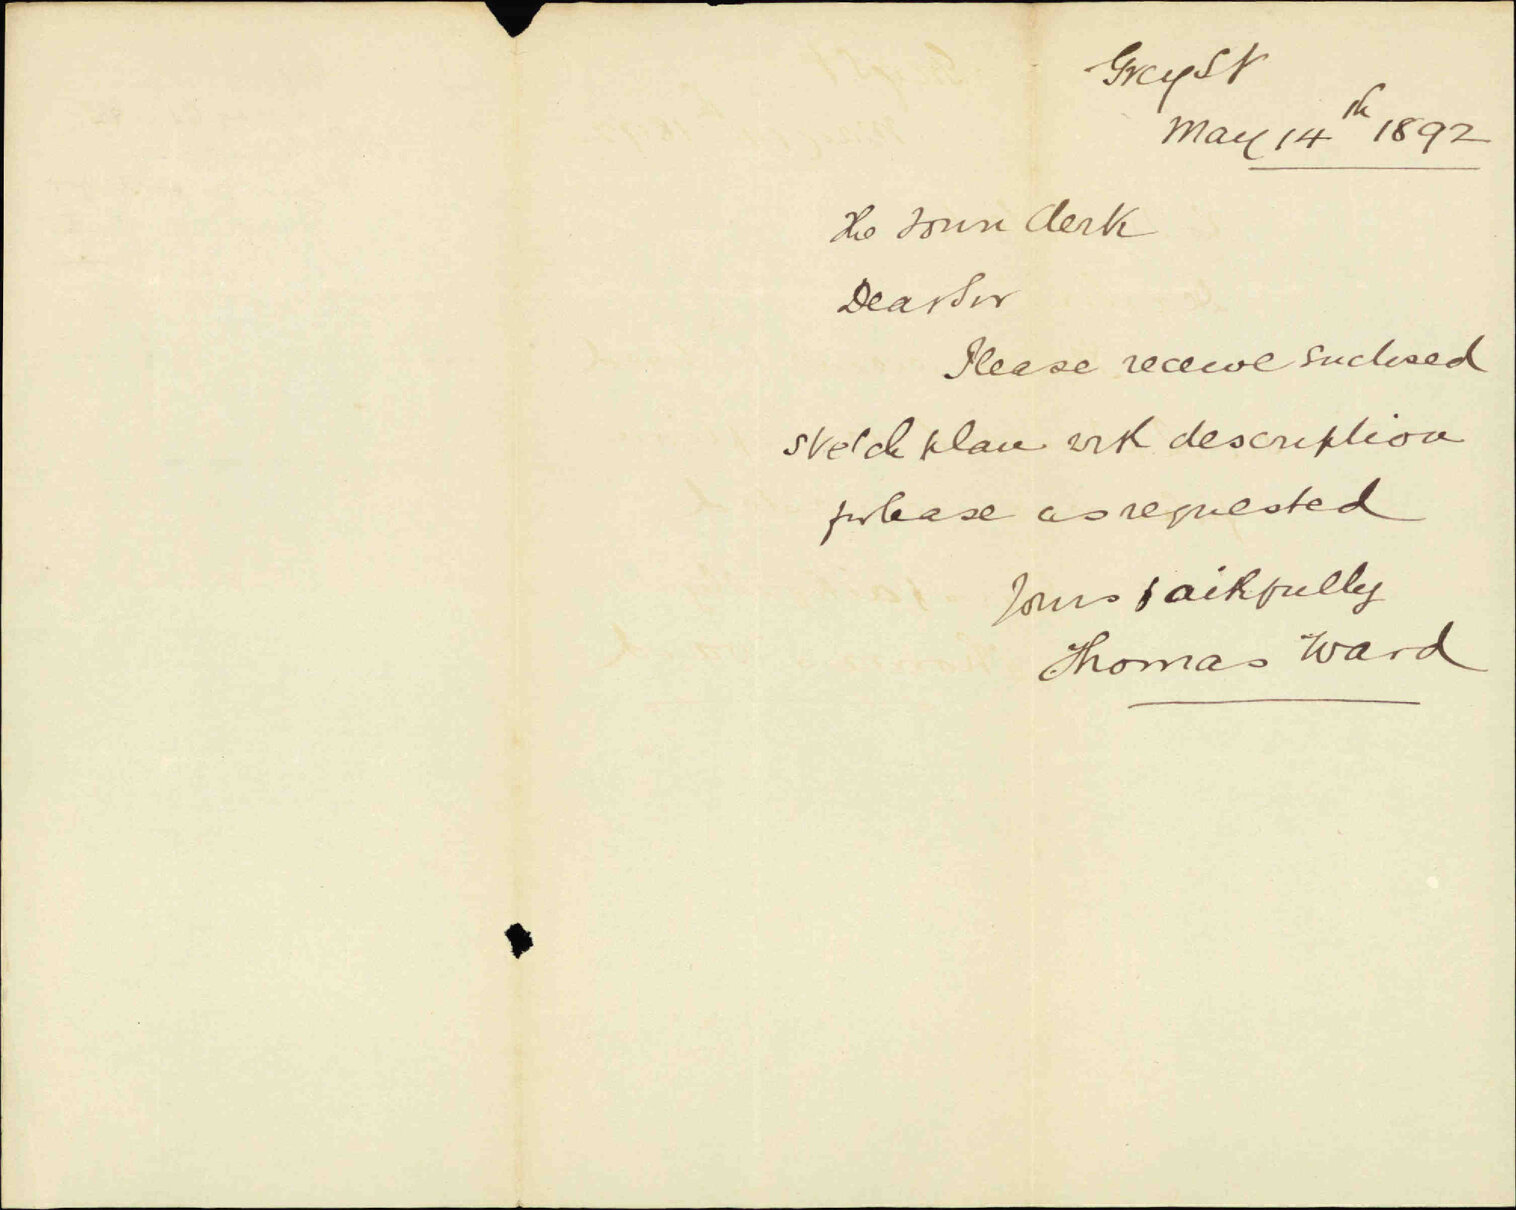 Grey St
May 14th 1892
The Town Clerk
Dear Sir
Please receive enclosed
sketch plan with description
for lease as requested
Yours faithfully
Thomas Ward